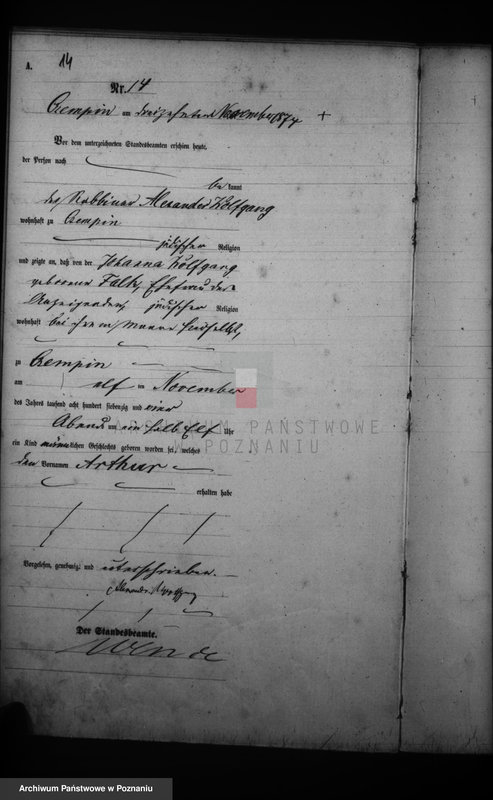 A. 14
Nr. 14
Czempin am dreizehnten November 1874
Vor dem unterzeichneten Standesbeamten erschien heute,
der Person nach
be kannt
der Rabbiner Alexander Wolfgang
wohnhaft zu Czempin
jüdischer Religion
und zeigte an, daß von der Johanna Wolfgang
geborene Falk, Ehefrau des
Anzeigenden, jüdischer Religion
wohnhaft bei ihrem Manne hieselbst,
zu Czempin
am elf ten November
des Jahres tausend acht hundert siebenzig und vier
Abends um ein halb Elf Uhr
ein Kind männlichen Geschlechts geboren worden sei, welches
den Vornamen Arthur
erhalten habe
Vorgelesen, genehmigt und unterschrieben.
Alexander Wolfgang
Der Standesbeamte.
ARCHIWUM PAŃSTWOWE
W POZNANIU
Archiwum Państwowe w Poznaniu